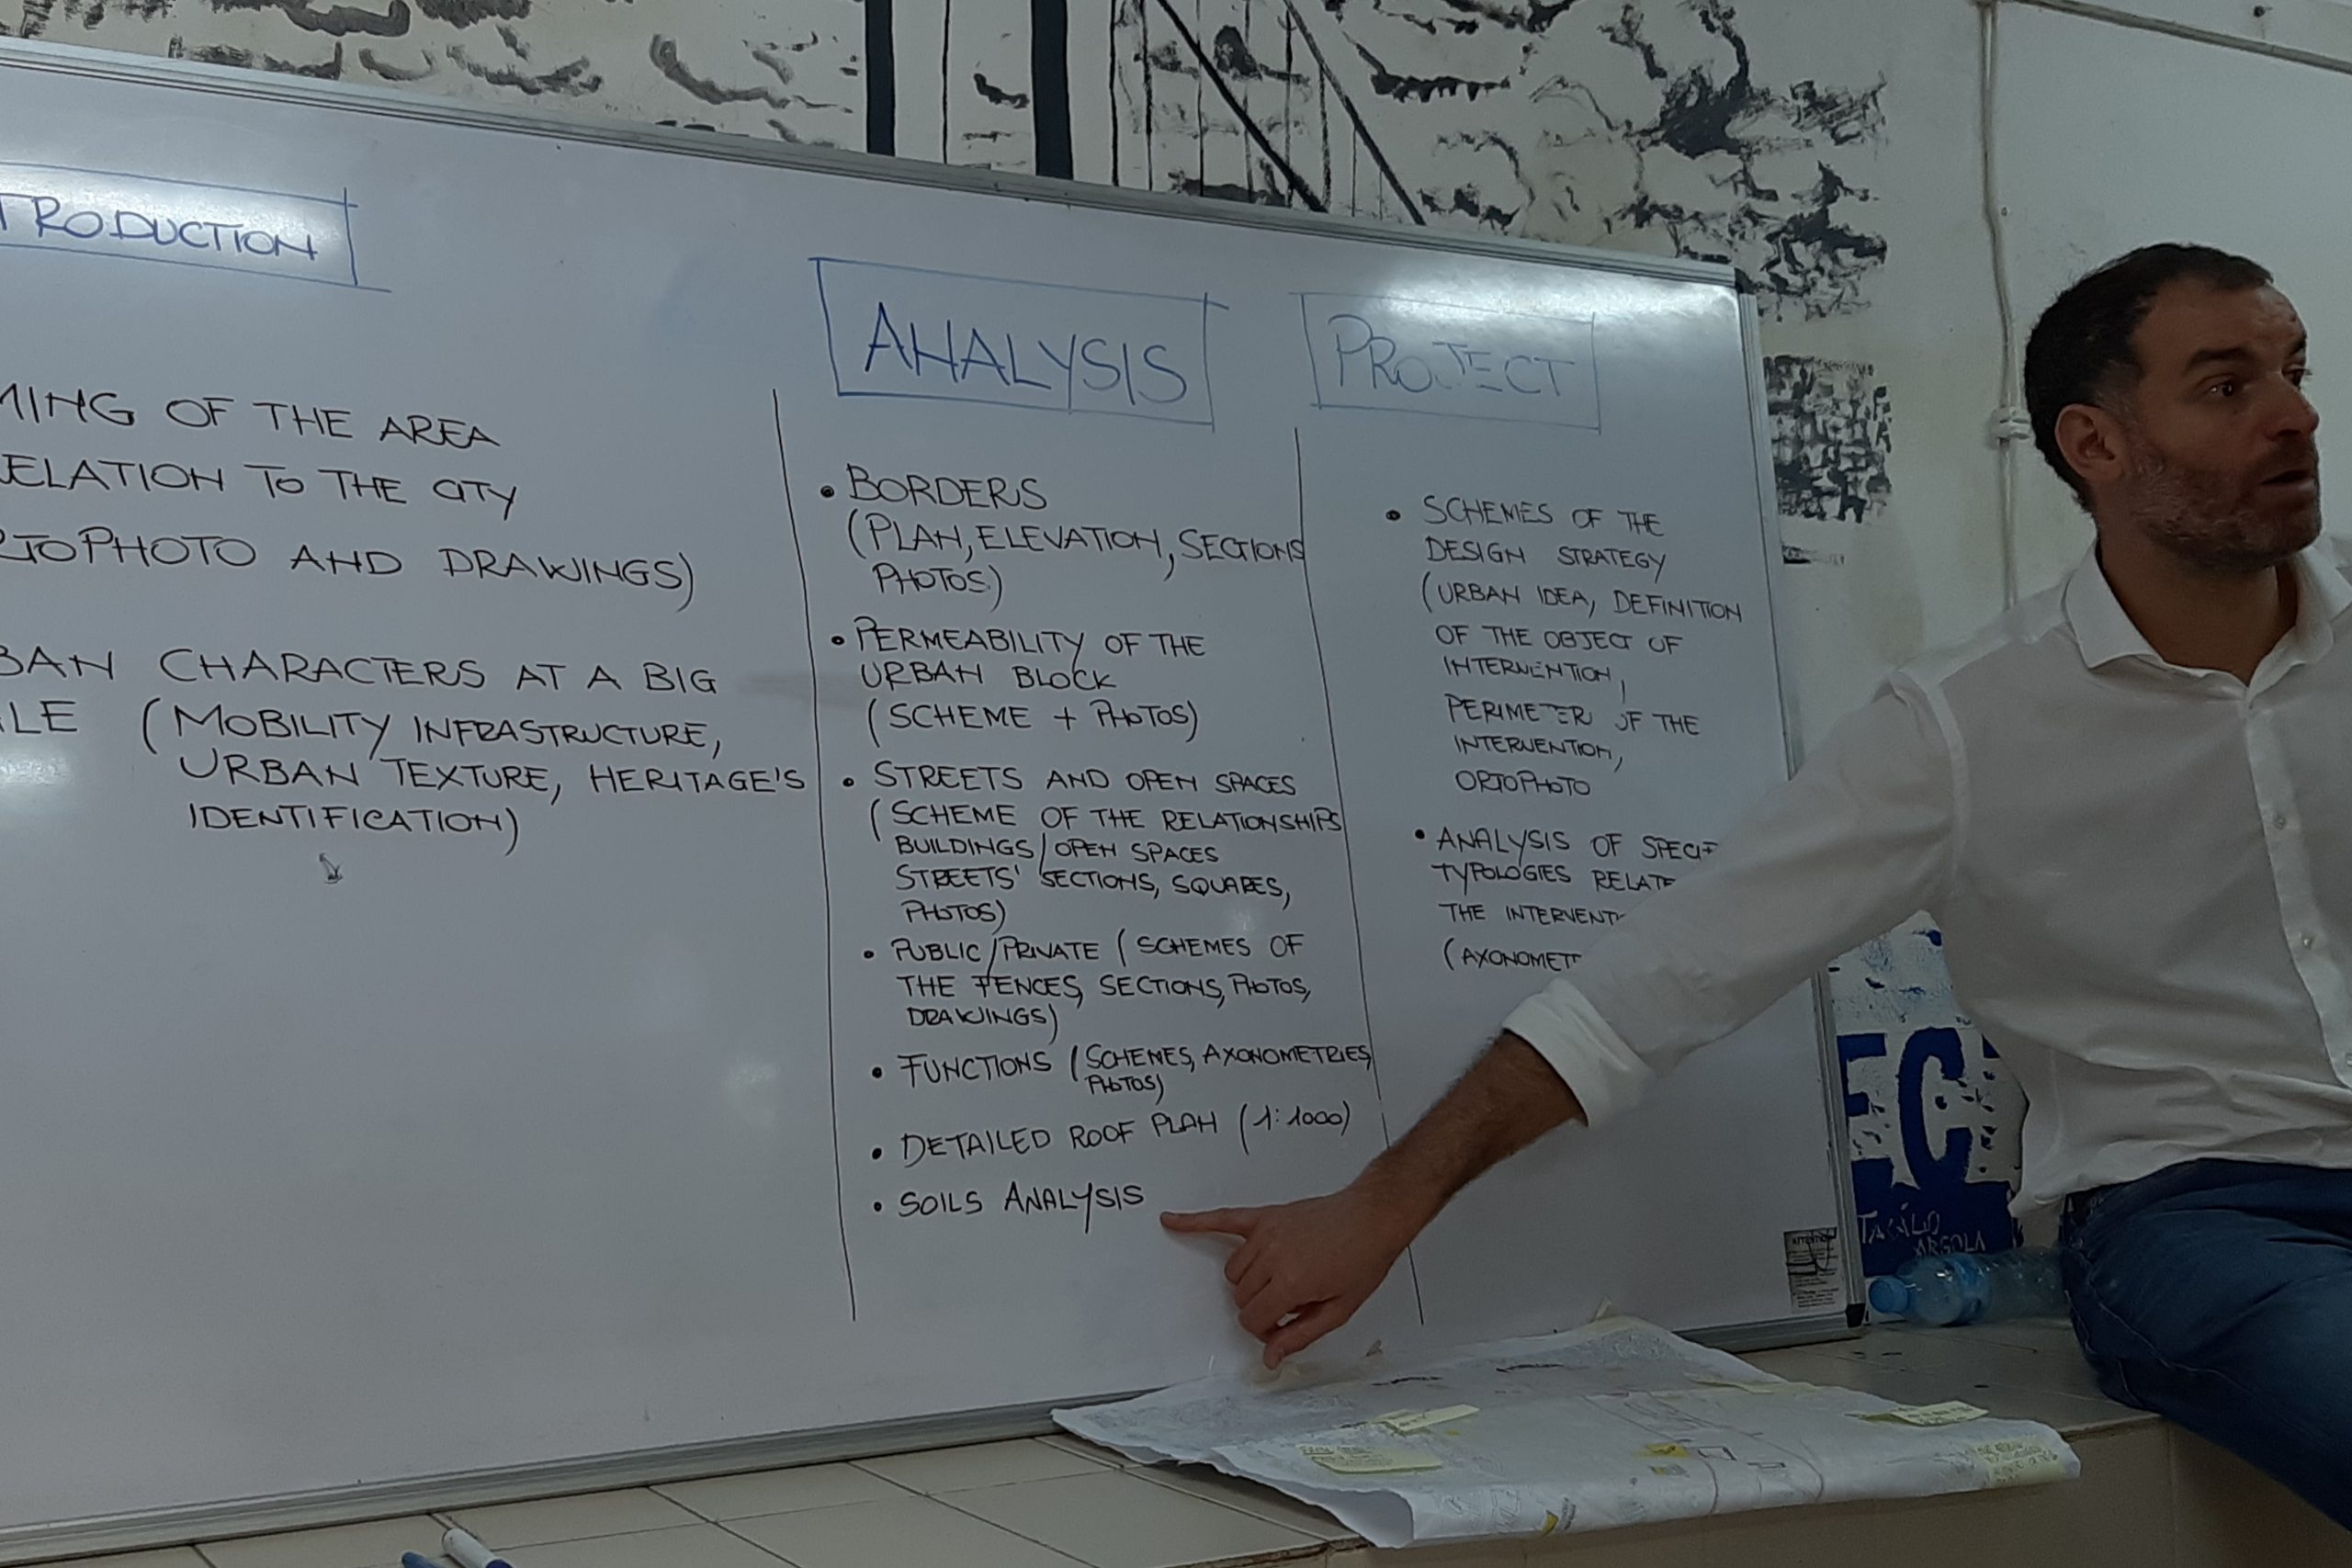 TRODUCTION
MING OF THE AREA
RELATION TO THE CITY
RTOPHOTO AND DRAWINGS)
BAN CHARACTERS AT A BIG
ALE (MOBILITY INFRASTRUCTURE,
URBAN TEXTURE, HERITAGE'S
IDENTIFICATION)
ANALYSIS
• BORDERS
(PLAN, ELEVATION, SECTIONS
PHOTOS)
• PERMEABILITY OF THE
URBAN BLOCK
(SCHEME + PHOTOS)
• STREETS AND OPEN SPACES
(SCHEME OF THE RELATIONSHIPS
BUILDINGS/OPEN SPACES
STREETS' SECTIONS, SQUARES,
PHOTOS)
• PUBLIC/PRIVATE (SCHEMES OF
THE FENCES, SECTIONS, PHOTOS,
DRAWINGS)
• FUNCTIONS (SCHEMES, AXONOMETRIES,
PHOTOS)
• DETAILED ROOF PLAN (1:1000)
• SOILS ANALYSIS
PROJECT
• SCHEMES OF THE
DESIGN STRATEGY
(URBAN IDEA, DEFINITION
OF THE OBJECT OF
INTERVENTION,
PERIMETER OF THE
INTERVENTION,
ORTOPHOTO
• ANALYSIS OF SPECIF
TYPOLOGIES RELATE
THE INTERVENTI
(AXONOMET
EC
ARGOLA
ATTENTION